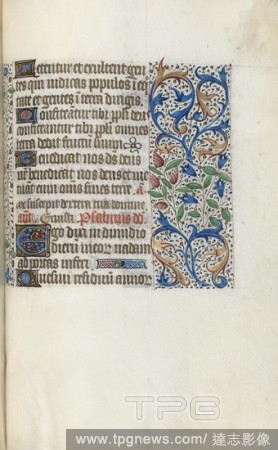 Letentur et exultent gen
tes qm iudicas populos i e
tate et gentes i terra dirigis.
Confiteatur tibi ppli deus
confiteantur tibi ppli omnes
terra dedit fructu suum
Benedicat nos ds deus
nr benedicat nos deus et me
tuāt eum oms fines terre.
suscepit dextera tua domine
añ. Psalmus dd
Ego dixi in dimidio
dierū meor vadam
ad portas inferi
Quesivi residuū annor
TPG
www.tpgnews.com/ 達志影像